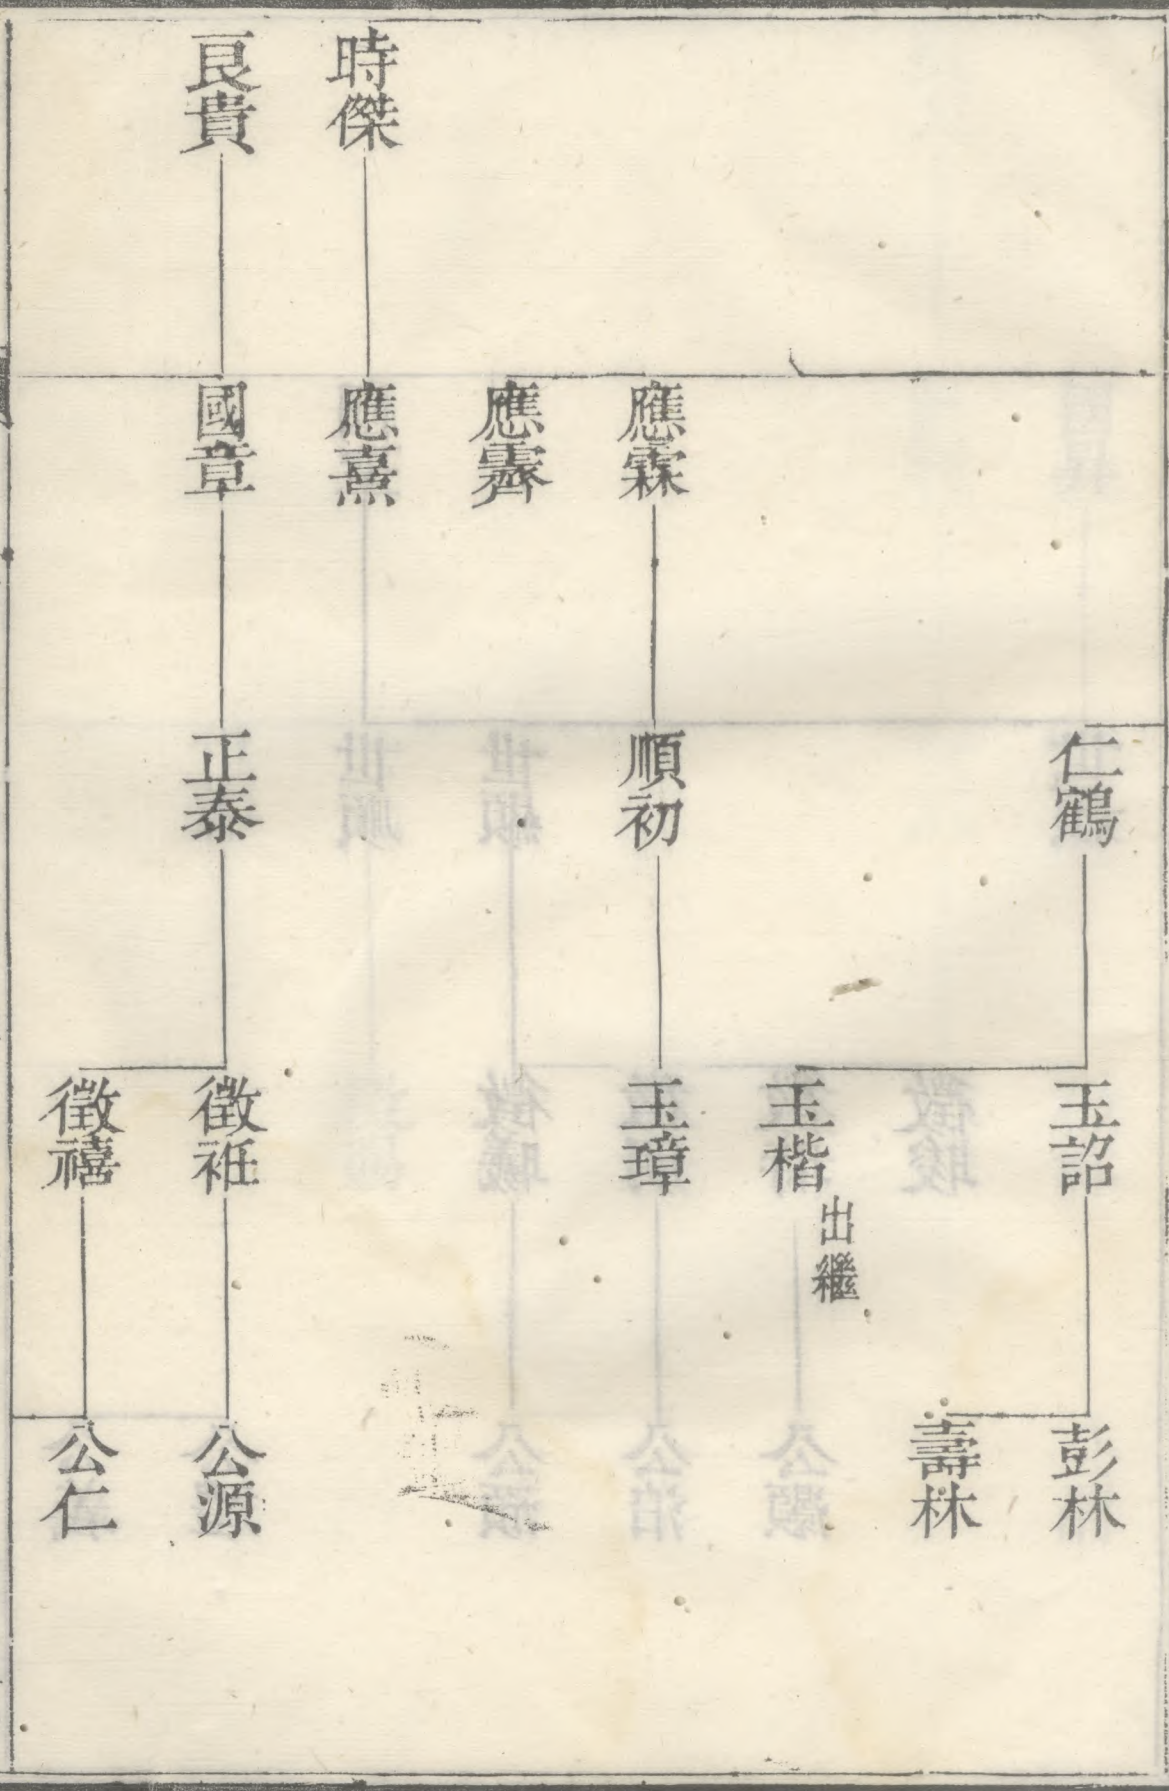 時傑
良貴
應霖
應霽
應熹
國章
仁鶴
順初
正泰
玉詔
玉楷
出繼
玉璋
徵祇
徵禧
彭林
壽林
公源
公仁